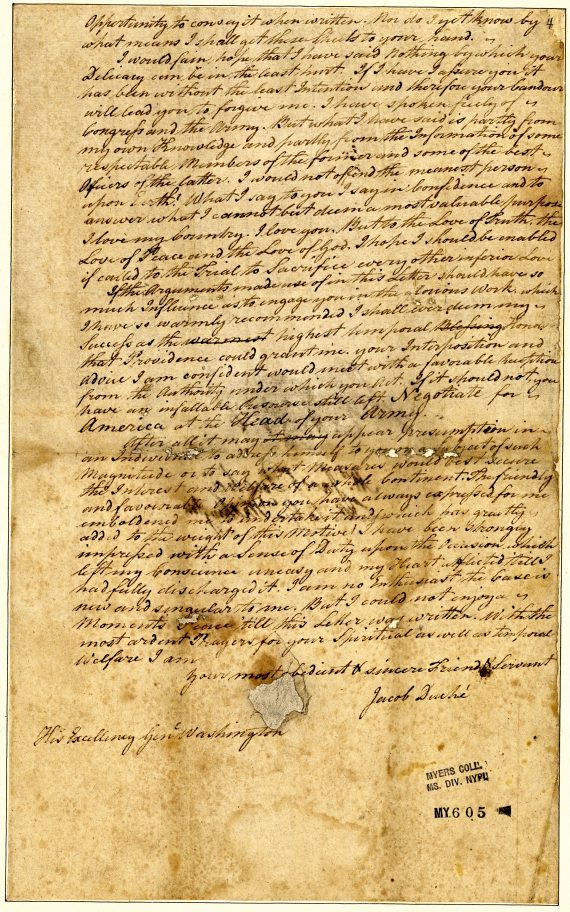 Opportunity to convey it when written. Nor do I yet know by 4
what means I shall get these Sheets to your hand.
I would fain hope that I have said Nothing by which your
Delicacy can be in the least hurt. If I have I assure you it
has been without the least Intention and therefore your Candour
will lead you to forgive me. I have spoken freely of
Congress and the Army. But what I have said is partly from
my own Knowledge and partly from the Information of some
respectable Members of the former and some of the best
Officers of the latter. I would not offend the meanest person
upon Earth. What I say to you I say in Confidence and to
answer what I cannot but deem a most valuable purpose
I love my Country. I love you. But to the Love of Truth, the
Love of Peace and the Love of God. I hope I should be enabled
if called to the Trial to Sacrifice every other inferior Love
If the Arguments made use of in this Letter should have so
much Influence as to engage you in the Glorious Work which
I have so warmly recommended I shall ever deem my
Success as the warmest highest temporal Blessing
that Providence could grant me. your Interposition and
advice I am confident would meet with a favorable Reception
from the Authority under which you Act. If it should not, you
have an infallable Recourse still left. Negotiate for
America at the Head of your Army.
After all it may appear presumption in
an Individual to address himself to you on a Subject of such
Magnitude or to say what Measures would best Secure
the Interest and Welfare of a whole Continent. The friendly
and favourable you have always expressed for me
emboldened me to undertake it and which has greatly
added to the weight of this Motive I have been Strongly
impressed with a Sense of Duty upon the Occasion which
left my Conscience uneasy and my Heart afflicted till I
had fully discharged it. I am no Enthusiast the Case is
new and singular to me. But I could not enjoy a
Moments peace till this Letter was written. With the
most ardent Prayers for your Spiritual as well as temporal
Welfare I am
Your most obedient & sincere Friend & Servant
Jacob Duché
His Excellency Genl. Washington
MYERS COLL.
MS. DIV. NYPL
MY.605